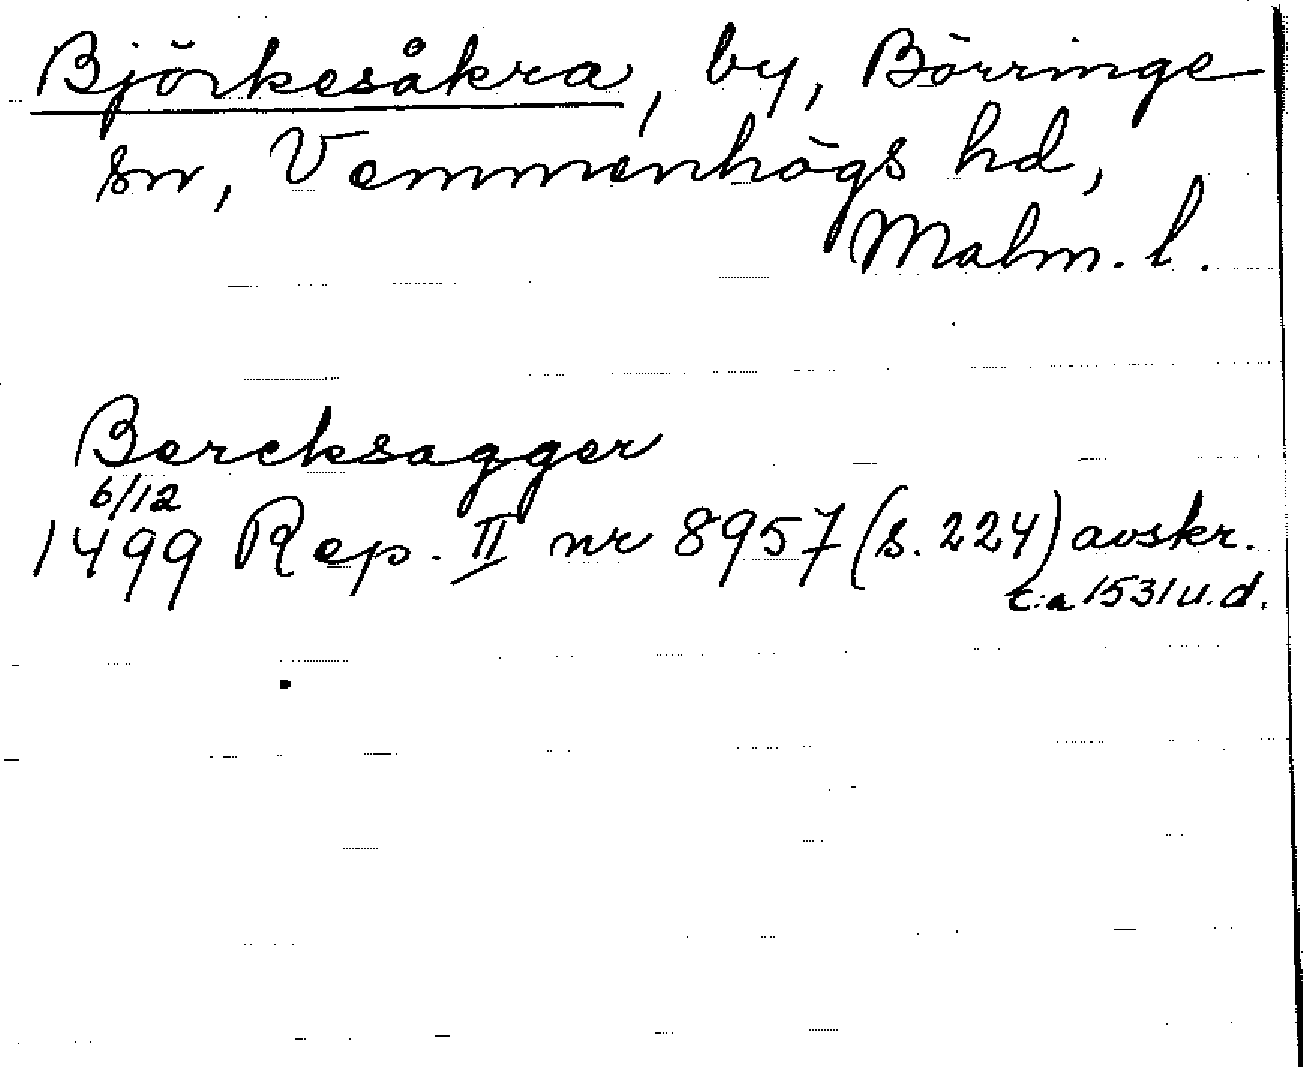 Björkesåkra, by, Börringe
sn, Vemmenhögs hd,
Malm. l.
Bercksagger
6/12
1499 Rep. II nr 8957 (s. 224) avskr.
c:a 1531 u.d.